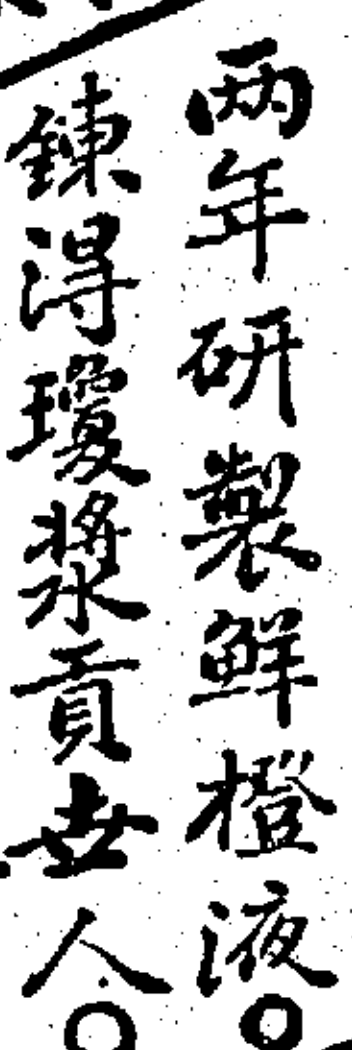 两年研製鮮橙液○
鍊得瓊漿貢世人○